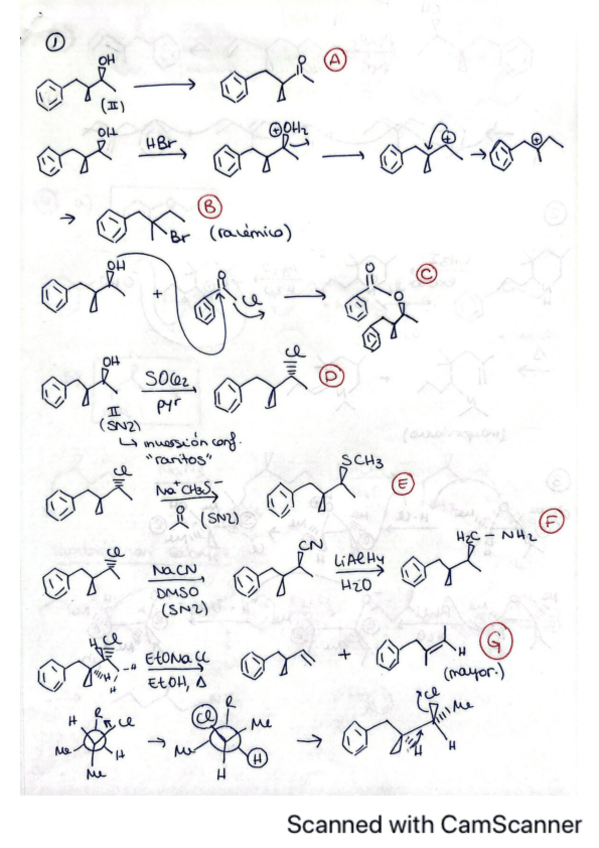 ①
OH O A
(II)
OH HBr ⊕OH₂ ⊕ ⊕
B
Br (racémico)
OH O Cl O C
+ O
OH SOCl₂ Cl D
pyr
II
(SN2)
↳ inversión conf.
"raritos"
Cl Na⁺CH₃S⁻ SCH₃ E
O (SN2)
Cl NaCN CN LiAlH₄ H₂C - NH₂ F
DMSO H₂O
(SN2)
H Cl EtONa + H G
H H EtOH, Δ (mayor.)
H R Cl Cl R Me Cl Me
Me H Me H H H
Me H
Scanned with CamScanner